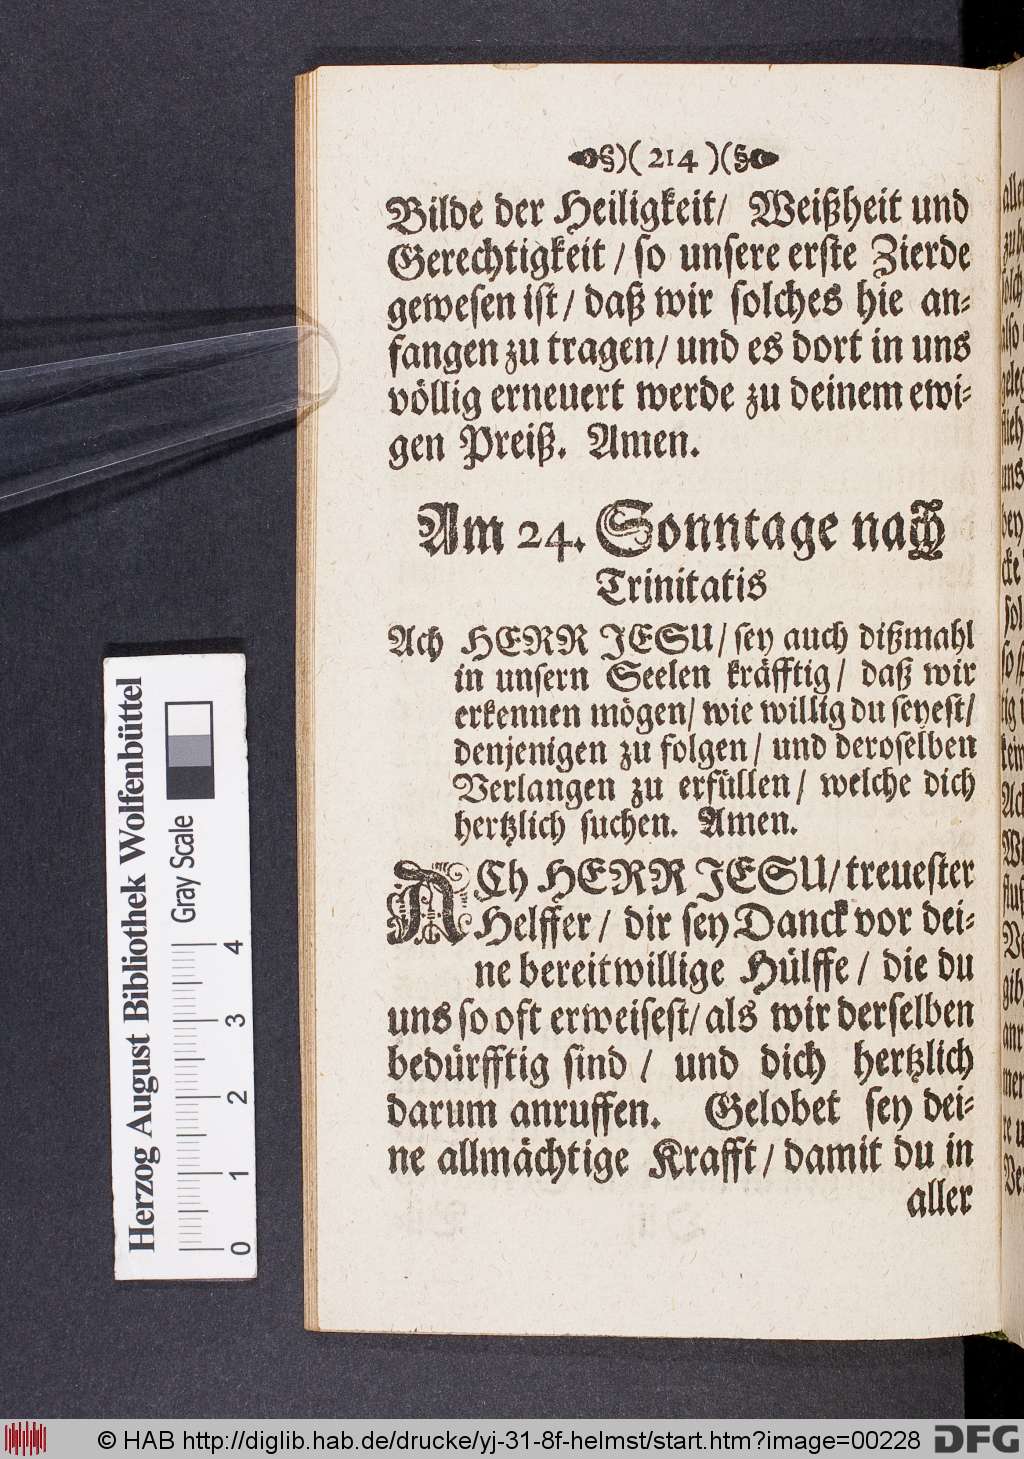 §)( 214 )(§
Bilde der Heiligkeit/ Weißheit und
Gerechtigkeit / so unsere erste Zierde
gewesen ist / daß wir solches hie an⸗
fangen zu tragen/ und es dort in uns
völlig erneuert werde zu deinem ewi⸗
gen Preiß. Amen.
Am 24. Sonntage nach
Trinitatis
Ach HERR JESU/ sey auch dißmahl
in unsern Seelen kräfftig / daß wir
erkennen mögen/ wie willig du seyest/
denjenigen zu folgen / und deroselben
Verlangen zu erfüllen / welche dich
hertzlich suchen. Amen.
ACh HERR JESU/ treuester
Helffer / dir sey Danck vor dei⸗
ne bereitwillige Hülffe / die du
uns so oft erweisest/ als wir derselben
bedürfftig sind / und dich hertzlich
darum anruffen. Gelobet sey dei⸗
ne allmächtige Krafft / damit du in
aller
Herzog August Bibliothek Wolfenbüttel
Gray Scale
0 1 2 3 4
© HAB http://diglib.hab.de/drucke/yj-31-8f-helmst/start.htm?image=00228
DFG